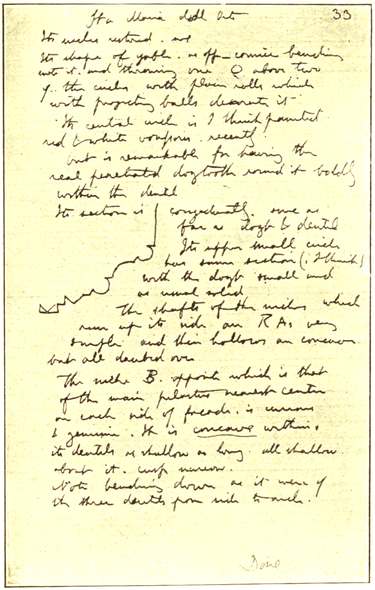 Sta Maria dell Orto 33
Its arches restored. and
Its shape of gable. as off-cornice bending
into it. and throwing one O above two
of the circles with plain rolls which
with projecting balls decorate it
Its central arch is I think painted
red & white voussoirs. recently!
but is remarkable for having the
real penetrated dogtooth round it boldly
within the dentil
Its section is consequently. same as
far as dogt to dentil
Its upper small circle
has same section (. I think)
with the dogt small and
as usual solid
The shafts of the niches which
run up its side are RAs very
simple and their hollows are concave
but all daubed over
The niche B. opposite which is that
of the main pilasters nearest center
on each side of facade. is curious
& genuine. It is concave within.
its dentils as shallow as long. all shallow
about it. cusp narrow.
Note bending down as it were of
its three dentils from side to arch.
Done